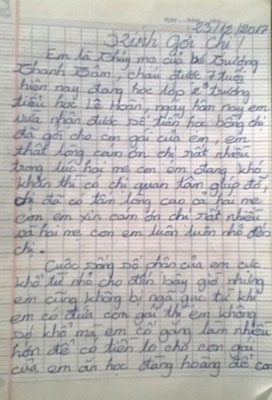 23/12/2017
Kính gởi chị!
Em là Thúy mẹ của bé Trương
Thanh Đảm, cháu được 7 tuổi
hiện nay đang học lớp 2³ trường
tiểu học Lê Hoàn, ngày hôm nay em
vừa nhận được số tiền học bổng chị
đã gởi cho con gái của em, em
thật lòng cảm ơn chị rất nhiều
trong lúc hai mẹ con em đang khó
khăn thì có chị quan tâm giúp đỡ,
chị đã có tấn lòng cao cả hai mẹ
con em xin cảm ơn chị rất nhiều
và hai mẹ con em luôn luôn nhớ đến
chị.
Cuộc sống số phân của em cực
khổ từ nhỏ cho đến bây giờ nhưng
em cũng không bị ngã gục từ khi
em có đứa con gái thì em không
sợ khổ mà em cố gắng làm nhiều
hơn để có tiền lo cho con gái
của em ăn học đàng hoàng để con